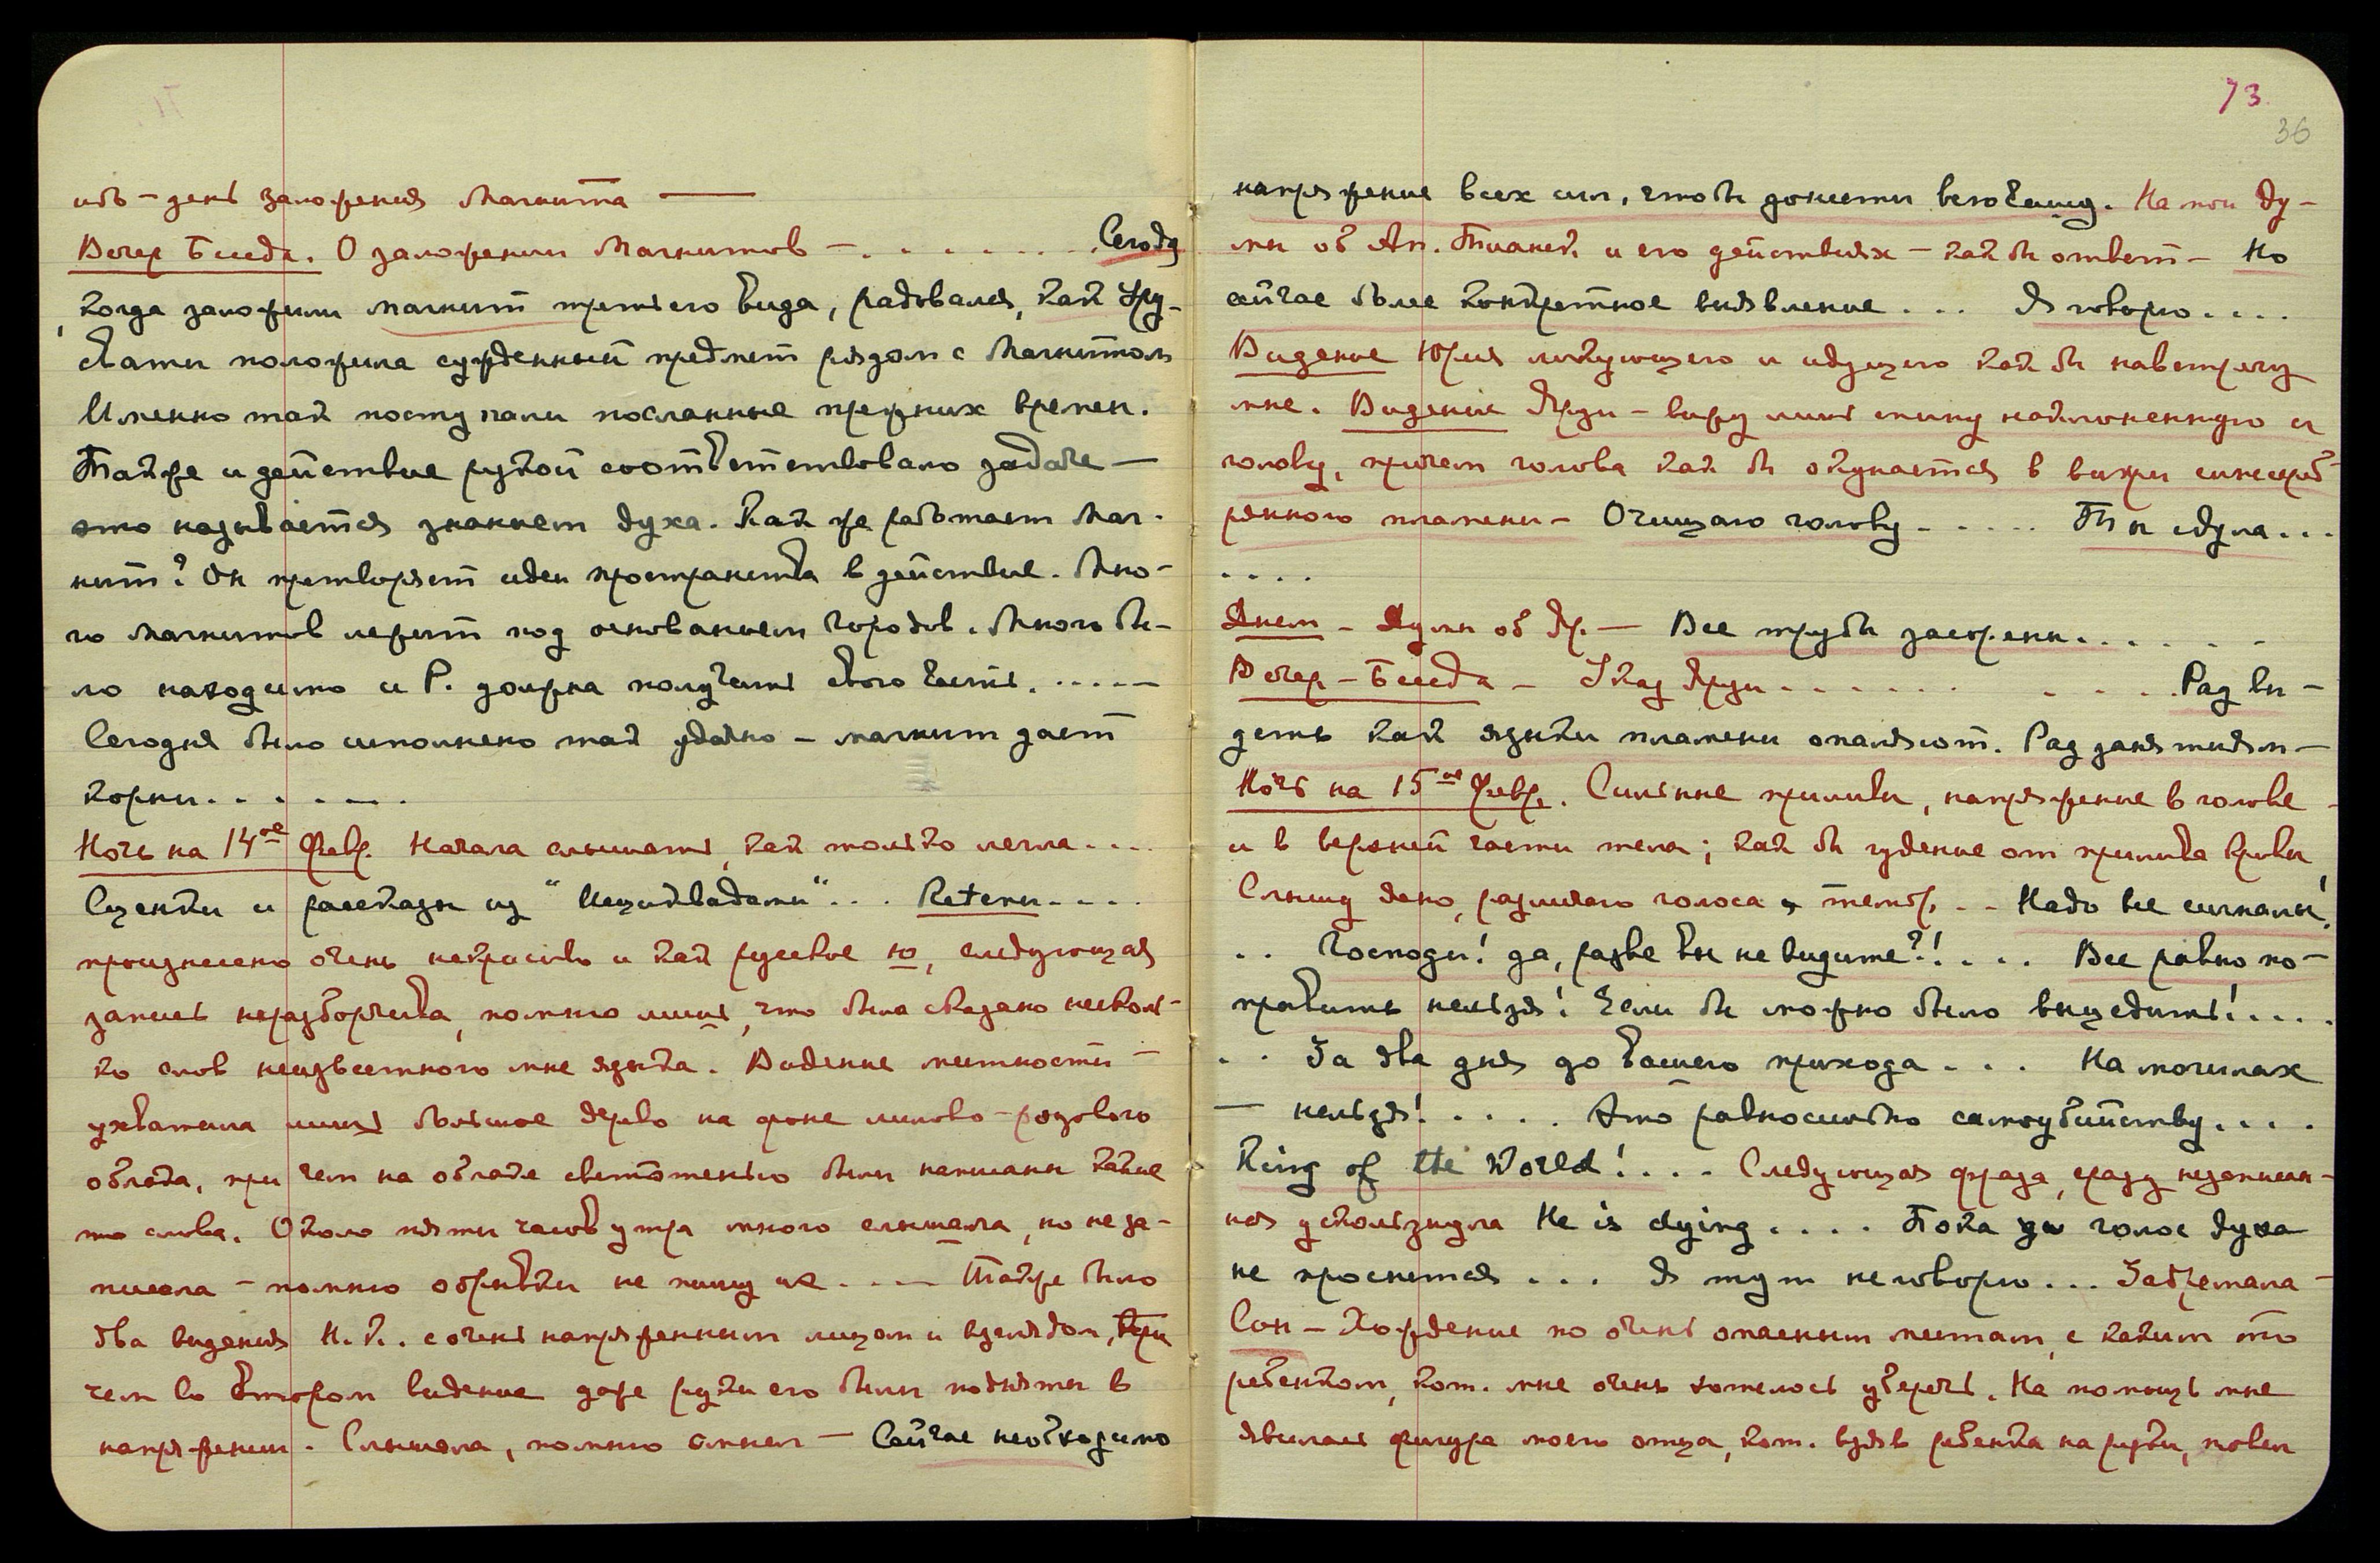 ибь – день заложения Магнита —
Вечер Беседа. О заложении Магнитов – . . . . . . . Сегодя
, когда заложили магнит третьего вида, радовался, как Уру-
свати положила сужденный предмет рядом с Магнитом
Именно так поступали посланные прежних времен.
Также и действие рукой соответствовало задаче —
это называется знанием духа. Как же работает Маг-
нит? Он претворяет идеи пространства в действие. Мно-
го магнитов лежит под основанием городов. Много бы-
ло находимо и Р. должна получить свою часть. . . . . –
Сегодня было исполнено так удачно – магнит дает
корни. . . . . .
Ночь на 14ое Февр. Начала слышать, как только легла. . . .
Сценки и рассказы из " " . . . Reteru. . . .
произнесено очень некрасиво и как русское ю, следующая
запись неразборчива, помню лишь, что было сказано несколь-
ко слов неизвестного мне языка. Видение местности –
ухватила лишь большое дерево на фоне лилово-розового
облака, при чем на облаке светотенью были написаны какие
то слова. Около пяти часов утра много слышала, но не за-
писала – помню обрывки не пишу их . . . — Также было
два видения Н.К. с очень напряженным лицом и взглядом, при
чем во втором видение даже руки его были подняты в
напряжении. Слышала, помню смысл — Сейчас необходимо
73.
36
напряжение всех сил, чтобы донести
мы об Ап. Тианск. и его действиях – как бы ответ – Но
сейчас более конкретное выявление . . . Я говорю. . . .
Видение Юрия ликующего и идущего как бы навстречу
мне. Видение Яруи – вижу лишь спину наклоненную и
голову, причем голова как бы окунается в вихри синесереб-
рянного пламени – Очищаю голову – . . . . Ты едула. . .
. . . .
Днем – Думы об Яр. — Все трубы засорены. . . . . –
Вечер – Беседа – Указ Яруи. . . . . . . . . . Рад ви-
деть как языки пламени опаляют. Рад занятиям –
Ночь на 15ое Февр. Сильные приливы, напряжение в голове –
и в верхней части тела; как бы гудение от прилива крови
Слышу ясно, различаю голоса и тембр. . – Надо все сигналы!
. . Господи! да, разве вы не видите?! . . . . Все равно по-
править нельзя! Если бы можно было выцедить! . . . .
. . За два дня до вашего прихода . . . . На могилах
— нельзя! . . . . Это равносильно самоубийству. . . .
King of the World! . . . – Следующая фраза, сразу незаписан-
ная ускользнула He is dying . . . . Пока голос духа
не проснется . . . Я тут не говорю . . . Задремала –
Сон – Хождение по очень опасным местам, с каким то
ребенком, кот. мне очень хотелось уберечь. На помощь мне
явилась фигура моего отца, кот. взяв ребенка на руки, повел